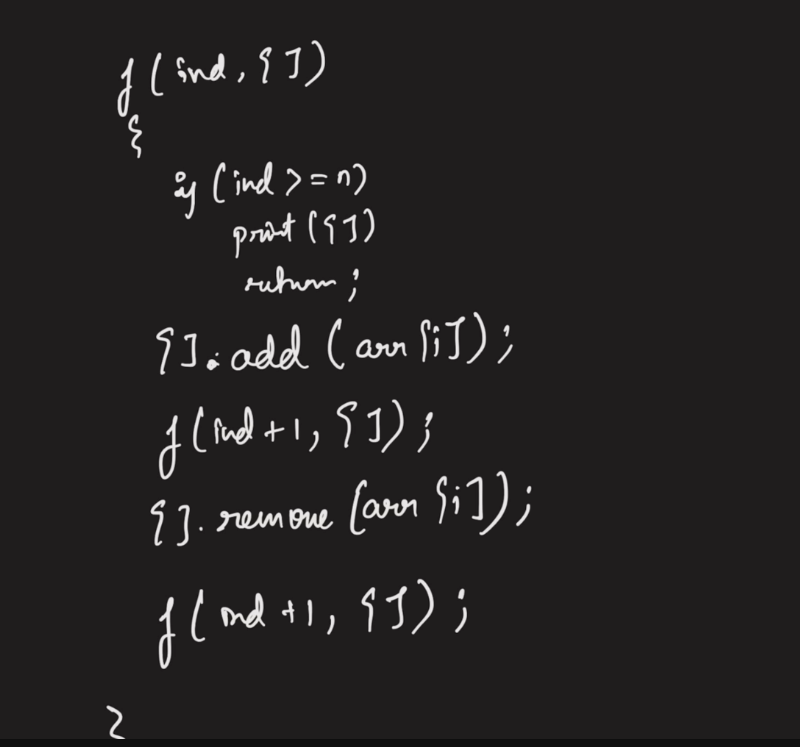 f(ind, [])
{
if (ind >= n)
print([])
return;
[].add(arr[i]);
f(ind+1, []);
[].remove(arr[i]);
f(ind+1, []);
}